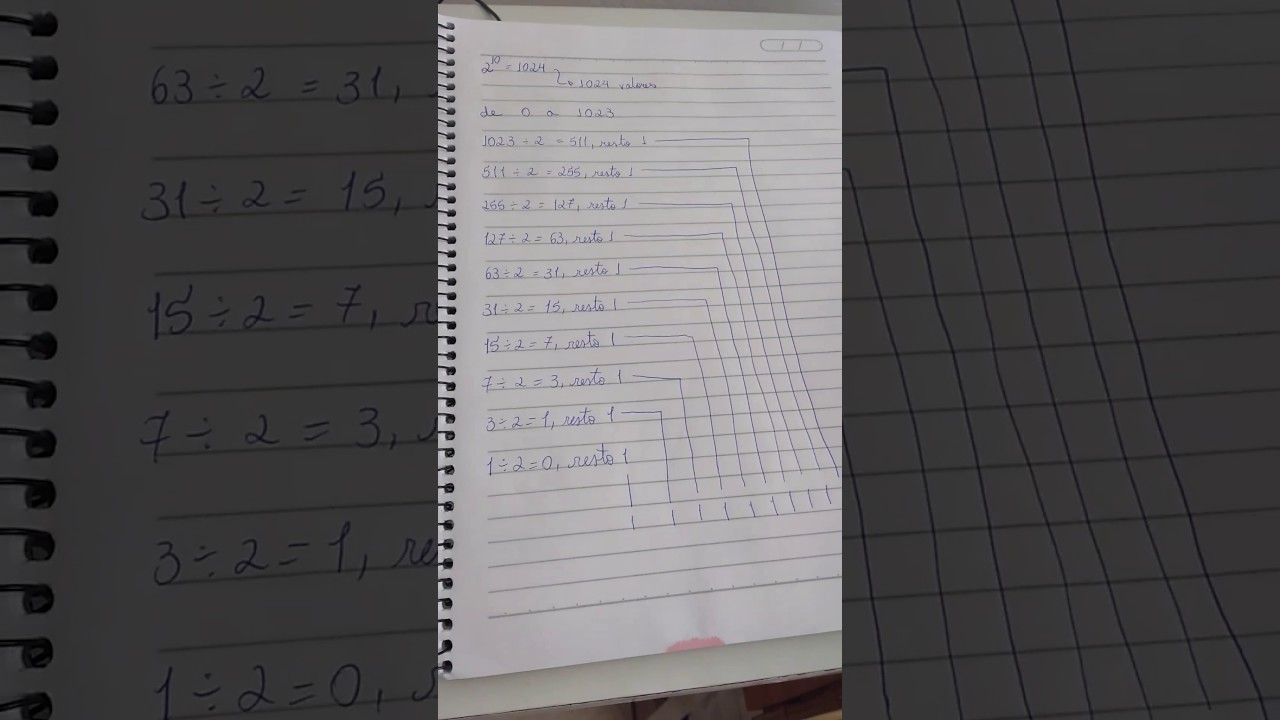 2^10 = 1024
1024 valores
de 0 a 1023
1023 ÷ 2 = 511, resto 1
511 ÷ 2 = 255, resto 1
255 ÷ 2 = 127, resto 1
127 ÷ 2 = 63, resto 1
63 ÷ 2 = 31, resto 1
31 ÷ 2 = 15, resto 1
15 ÷ 2 = 7, resto 1
7 ÷ 2 = 3, resto 1
3 ÷ 2 = 1, resto 1
1 ÷ 2 = 0, resto 1
1 1 1 1 1 1 1 1 1